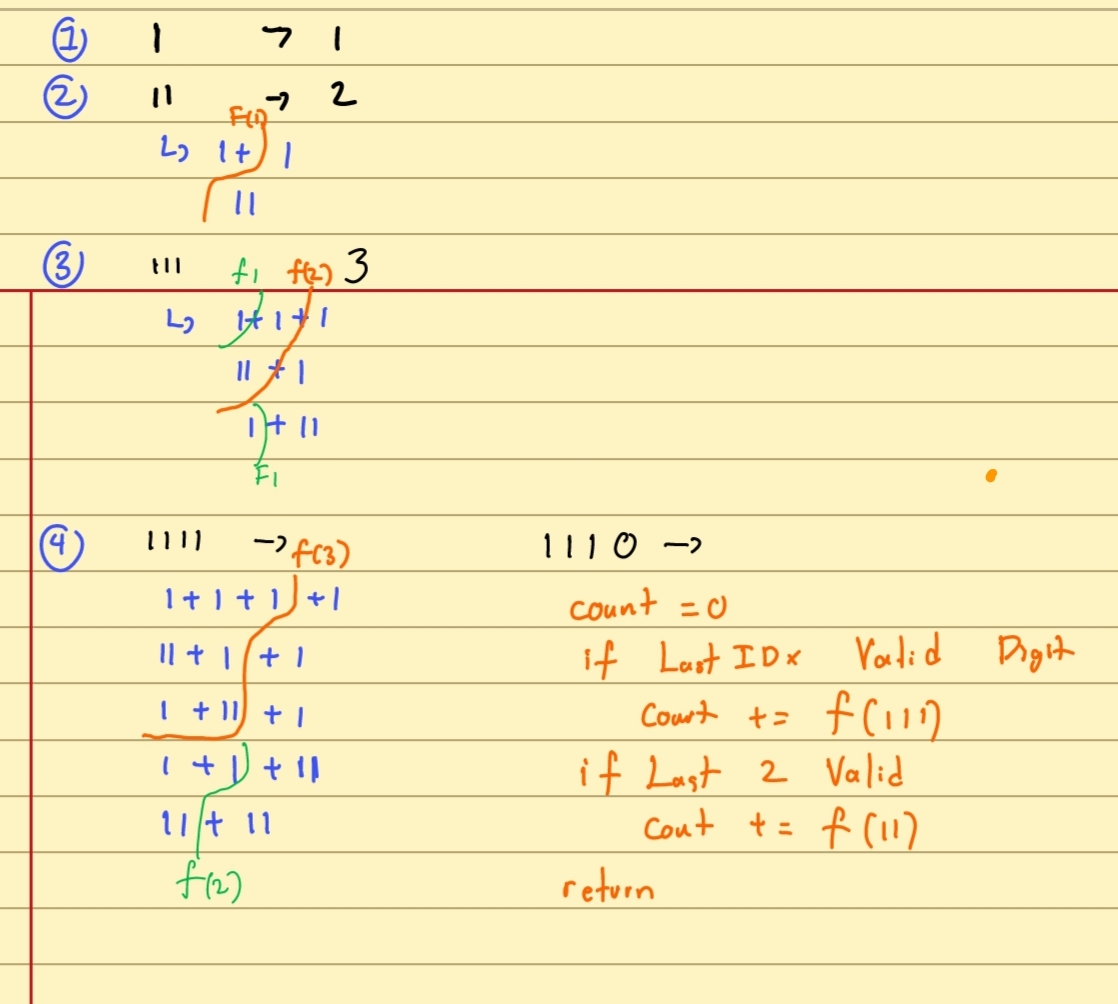 ① 1 → 1
② 11 → 2
F(1)
↳ 1+ 1
11
③ 111 f1 f(2) 3
↳ 1+1+1
11 + 1
1 + 11
F1
④ 1111 → f(3)
1+1+1 +1
11 + 1 + 1
1 + 11 + 1
1 + 1 + 11
11 + 11
f(2)
1110 →
count = 0
if Last IDx Valid Digit
Count += f(111)
if Last 2 Valid
Cout += f(11)
return